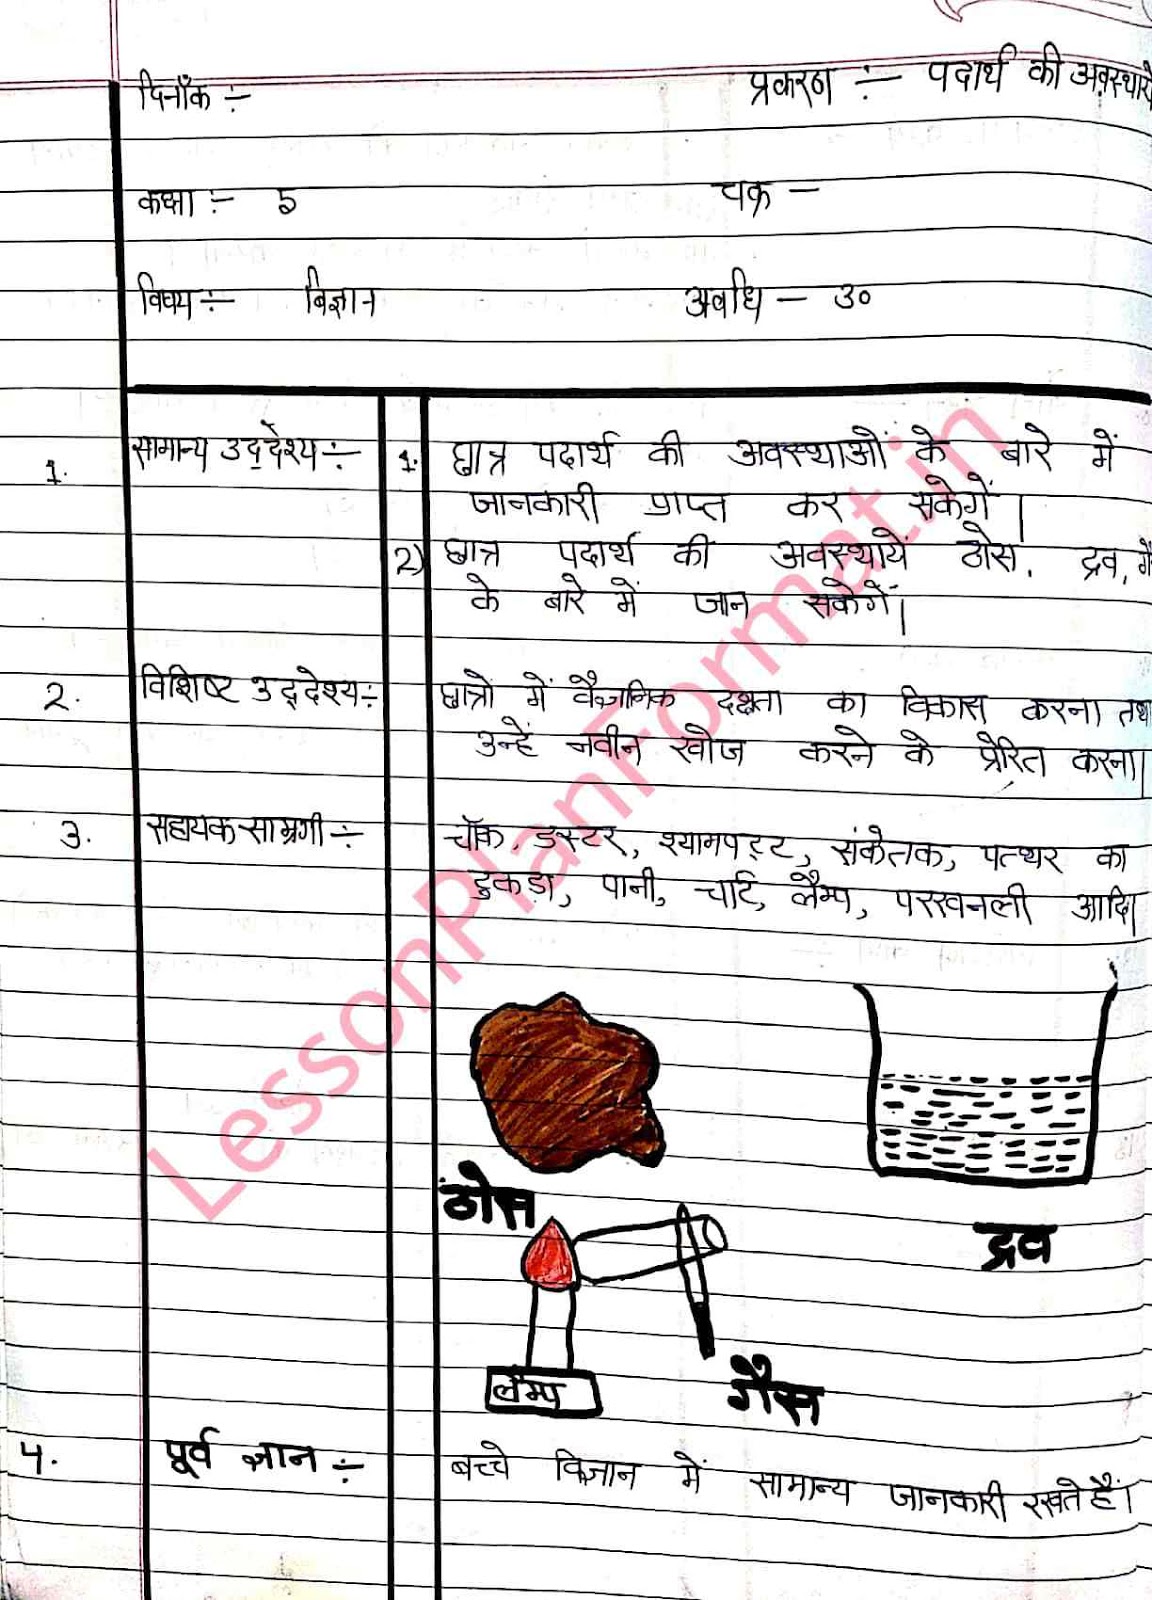 दिनाँक :-
प्रकरण :- पदार्थ की अवस्थाये
कक्षा :- 5
चक्र -
विषय :- विज्ञान
अवधि - 30
1. सामान्य उद्देश्य :-
1. छात्र पदार्थ की अवस्थाओं के बारे में
जानकारी प्राप्त कर सकेगें।
2) छात्र पदार्थ की अवस्थायें ठोस, द्रव,
के बारे में जान सकेगें।
2. विशिष्ट उद्देश्य :-
छात्रो में वैज्ञानिक दक्षता का विकास करना तथा
उन्हें नवीन खोज करने के प्रेरित करना।
3. सहायक साम्रगी :-
चॉक, डस्टर, श्यामपट्ट, संकेतक, पत्थर का
टुकड़ा, पानी, चार्ट, लैम्प, परखनली आदि।
ठोस
द्रव
लैम्प
गैस
4. पूर्व ज्ञान :-
बच्चे विज्ञान में सामान्य जानकारी रखते हैं।
LessonPlanFormat.in